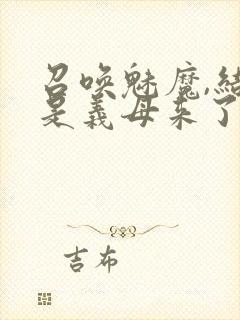 召唤魅魔,结
是义母来了
吉布